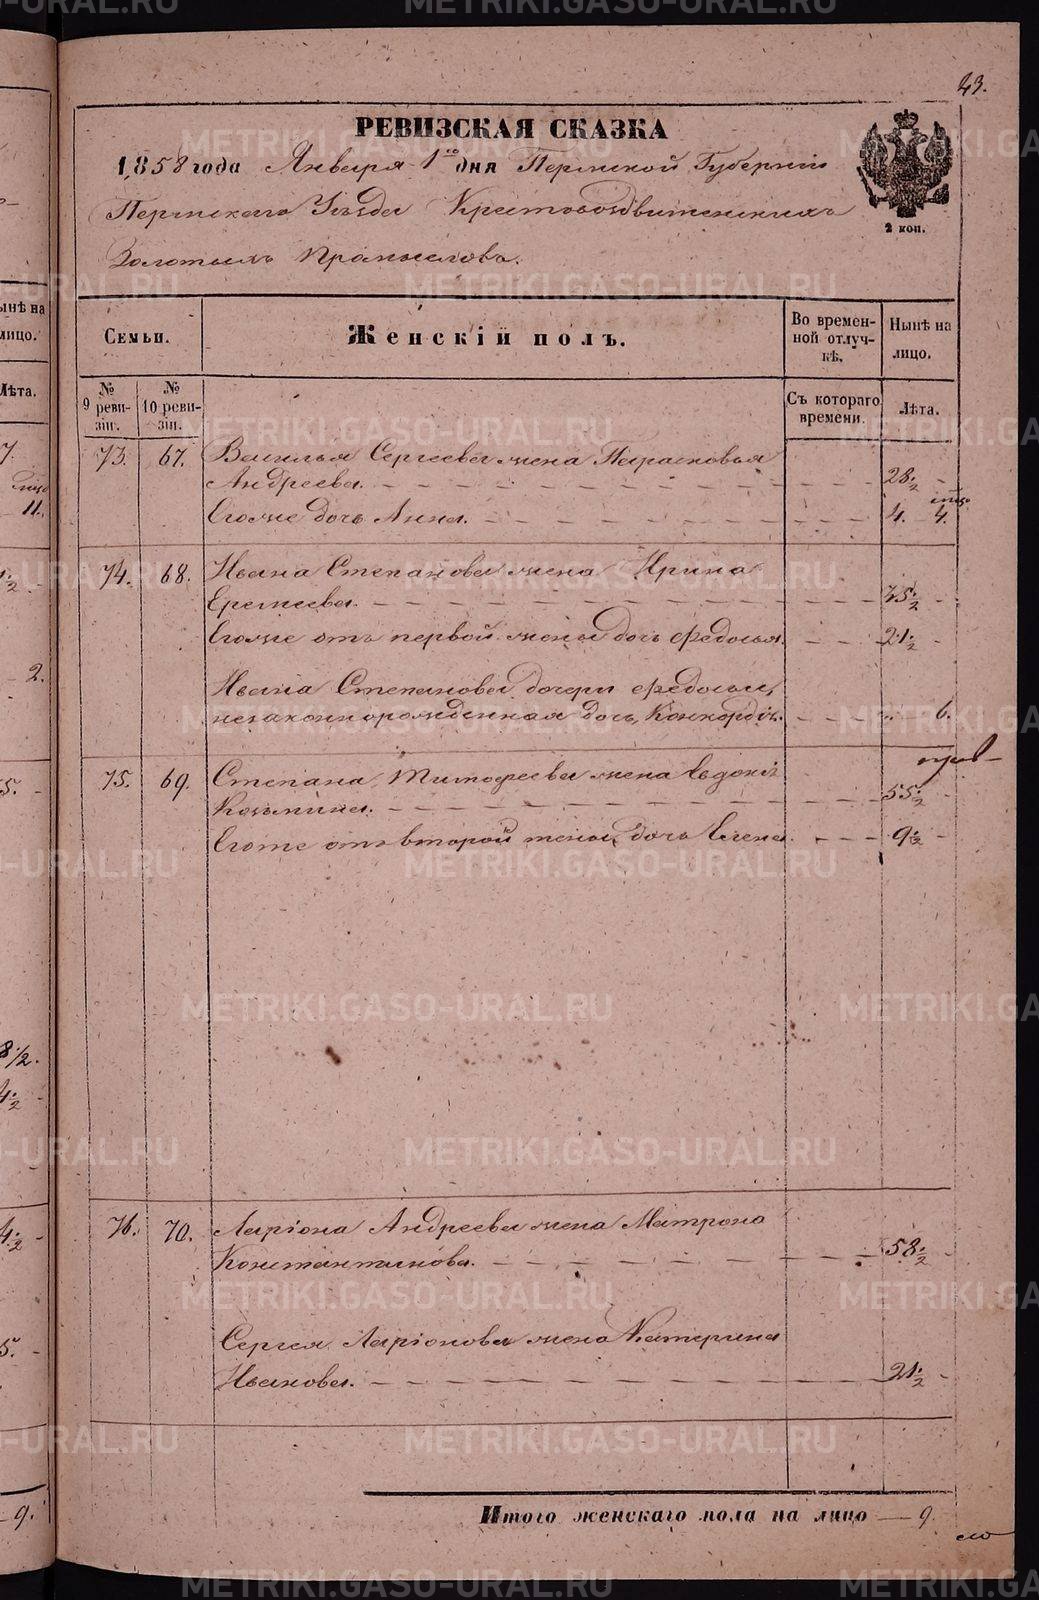 43.
РЕВИЗСКАЯ СКАЗКА
1858 года Января 1го дня Пермской Губерніи
Пермскаго Уѣзда Крестовоздвиженскихъ
Золотыхъ Промысловъ.
2 коп.
Семьи.
Женскій полъ.
Во времен-
ной отлуч-
кѣ.
Нынѣ на
лицо.
№
9 реви-
зіи.
№
10 реви-
зіи.
Съ котораго
времени.
Лѣта.
73. 67. Василья Сергеева жена Парасковья
Андреева. 28 1/2
Егоже дочь Анна. 4. 4.
74. 68. Ивана Степанова жена Ирина
Еремеева. 45 1/2
Егоже отъ первой жены дочь Федосья. 21 1/2
Ивана Степанова дочери Федосьи,
незаконнорожденная дочь, Конкордія. 6.
75. 69. Степана Тимофеева жена Евдокія
Козьмина. 55 1/2
Егоже отъ второй жены, дочь Елена. 9 1/2
76. 70. Ларіона Андреева жена Матрона
Константинова. 58 1/2
Сергея Ларіонова жена Катерина
Иванова. 21 1/2
Итого женскаго пола на лицо — 9.
ынѣ на
лицо.
Лѣта.
7.
11.
2.
5.
8 1/2.
4 1/2
4 1/2
5.
9.
METRIKI.GASO-URAL.RU